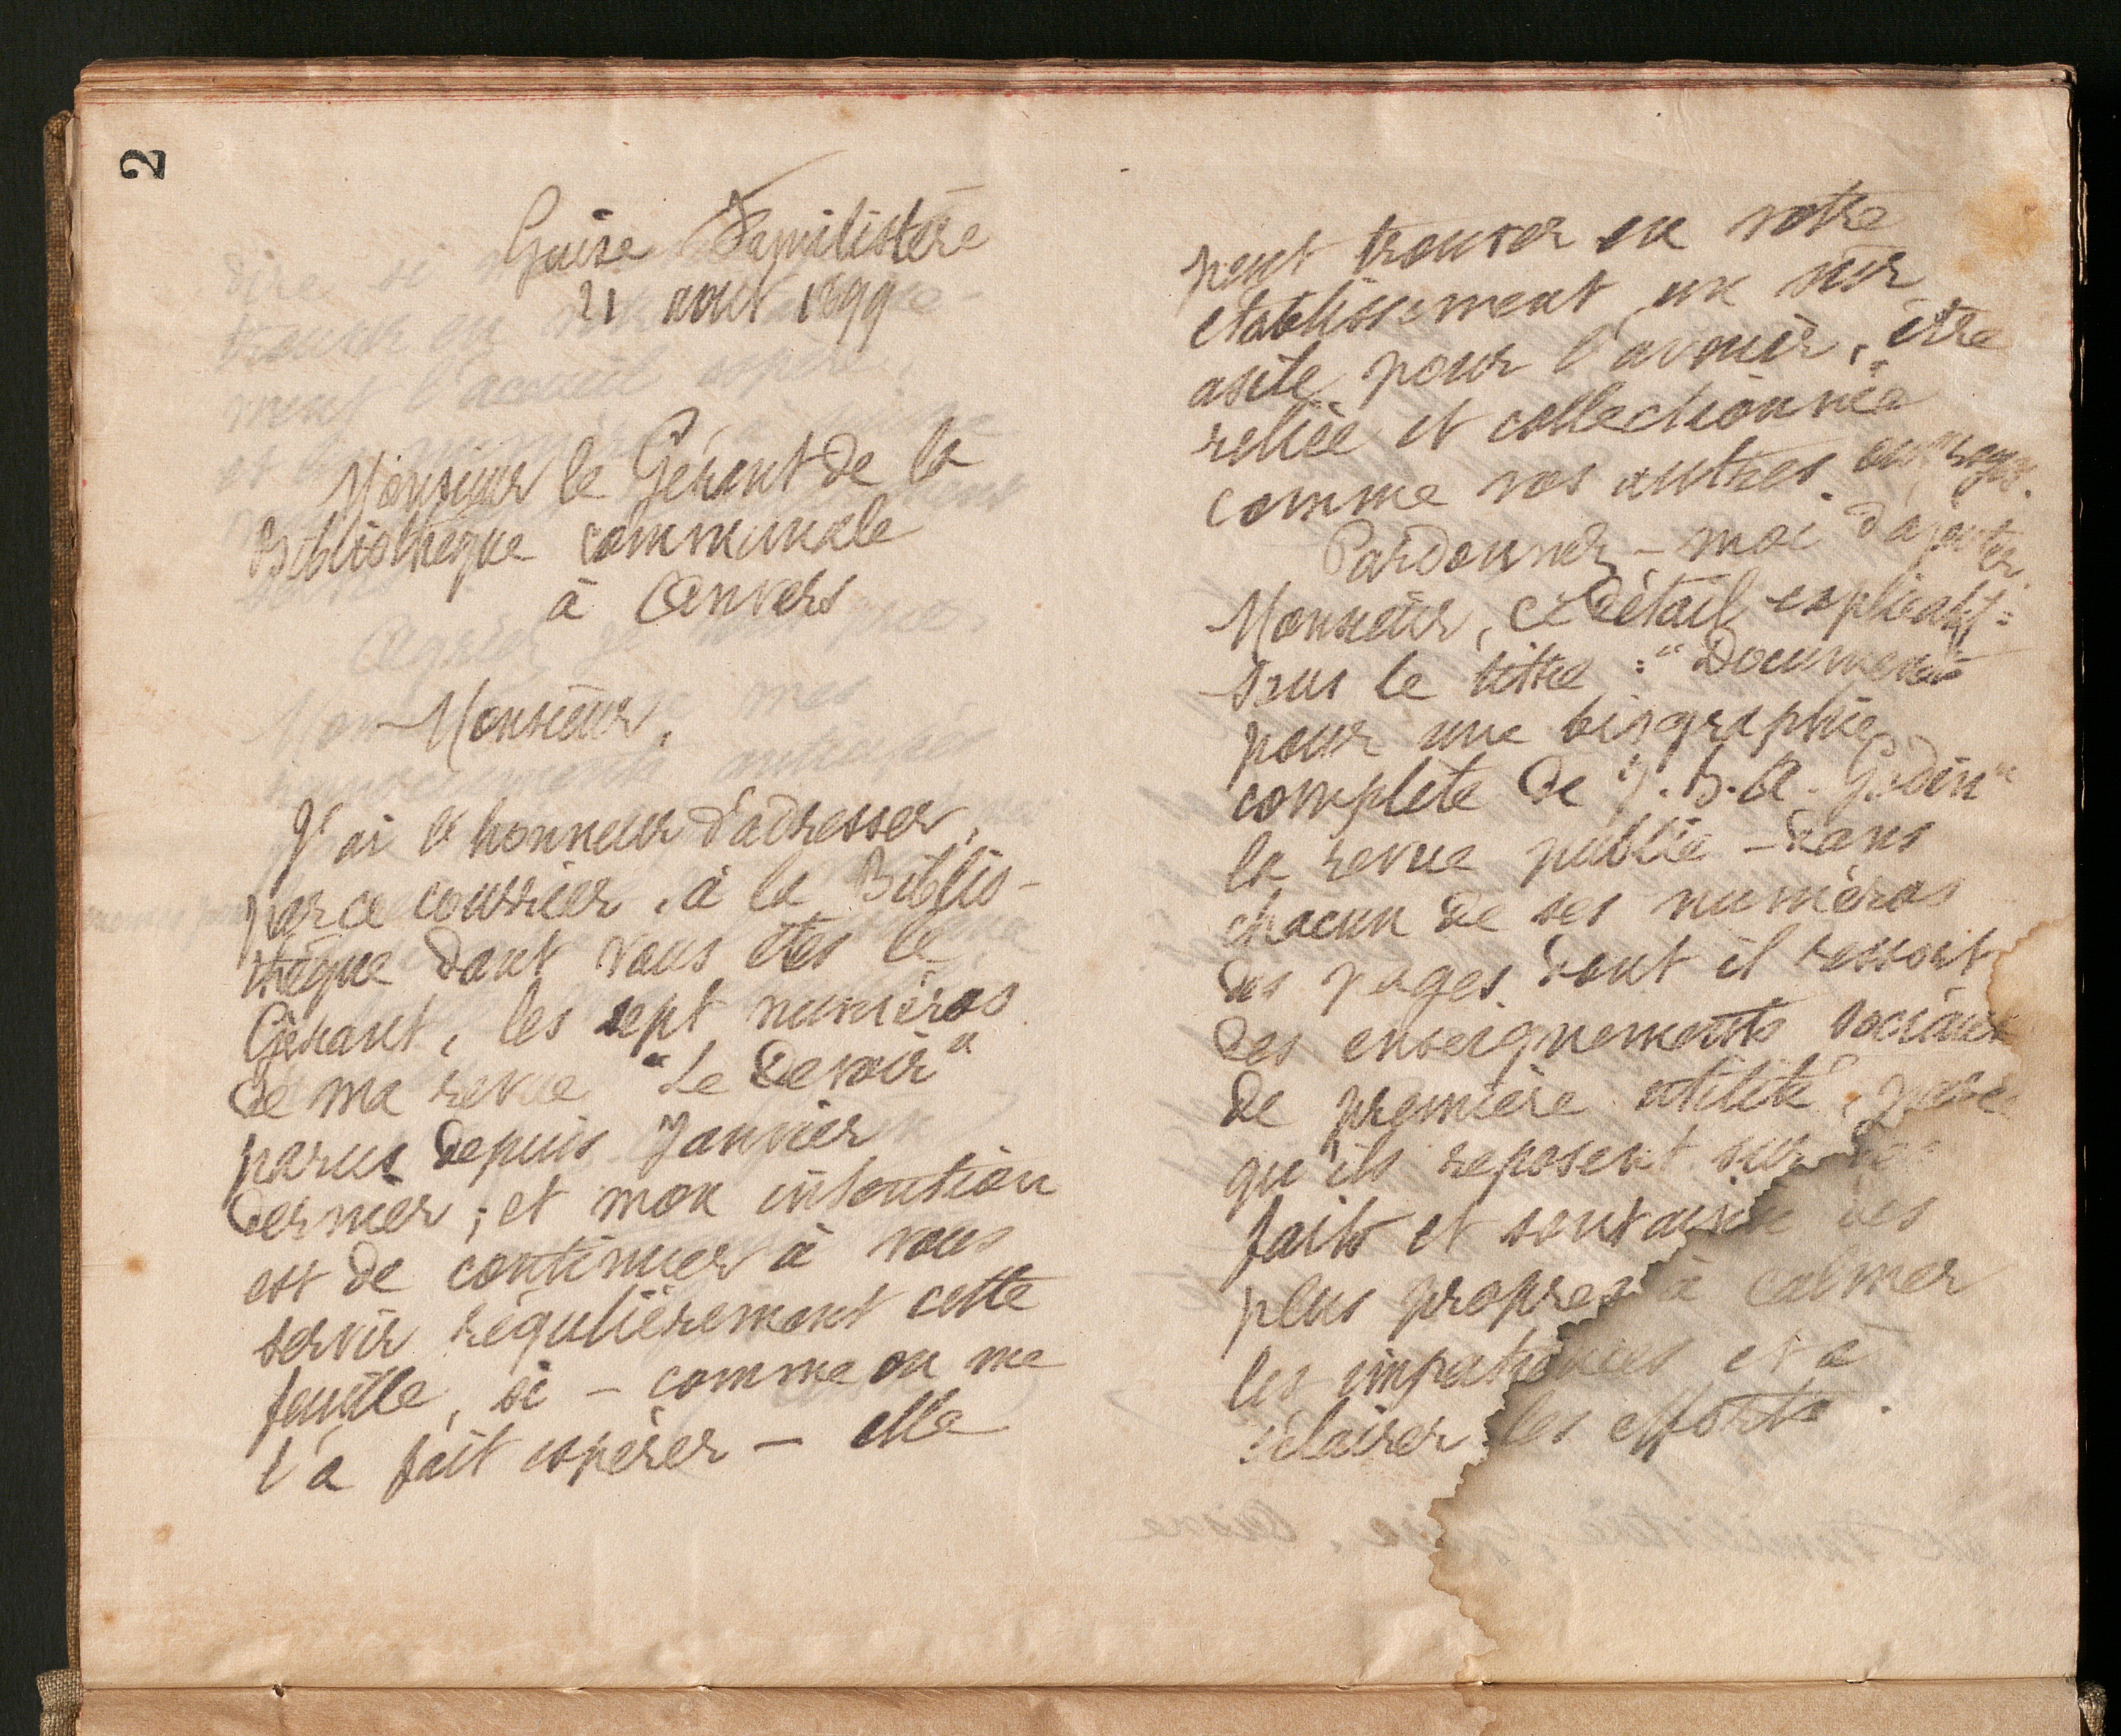 2
Guise Familistère
21 aout 1899
Monsieur le Gérant de la
Bibliothèque communale
à Anvers
Monsieur,
J'ai l'honneur d'adresser,
par ce courrier, à la Biblio-
thèque dont vous êtes le
Gérant, les sept numéros
de ma revue "Le Devoir"
parus depuis Janvier
dernier ; et mon intention
est de continuer à vous
servir régulièrement cette
feuille, si - comme on me
l'a fait espérer - elle
peut trouver en votre
établissement un sûr
asile pour l'avenir, être
reliée et collectionnée
comme vos autres ouvrages.
Pardonnez-moi d'ajouter,
Monsieur, ce détail explicatif :
Sous le titre : "Documents
pour une biographie
complète de J.B.A. Godin"
la revue publie dans
chacun de ses numéros
des pages dont il ressort
des enseignements sociaux
de première utilité, parce
qu'ils reposent sur
faits et sont aussi des
plus propres à calmer
les impatiences et à
éclairer les efforts.